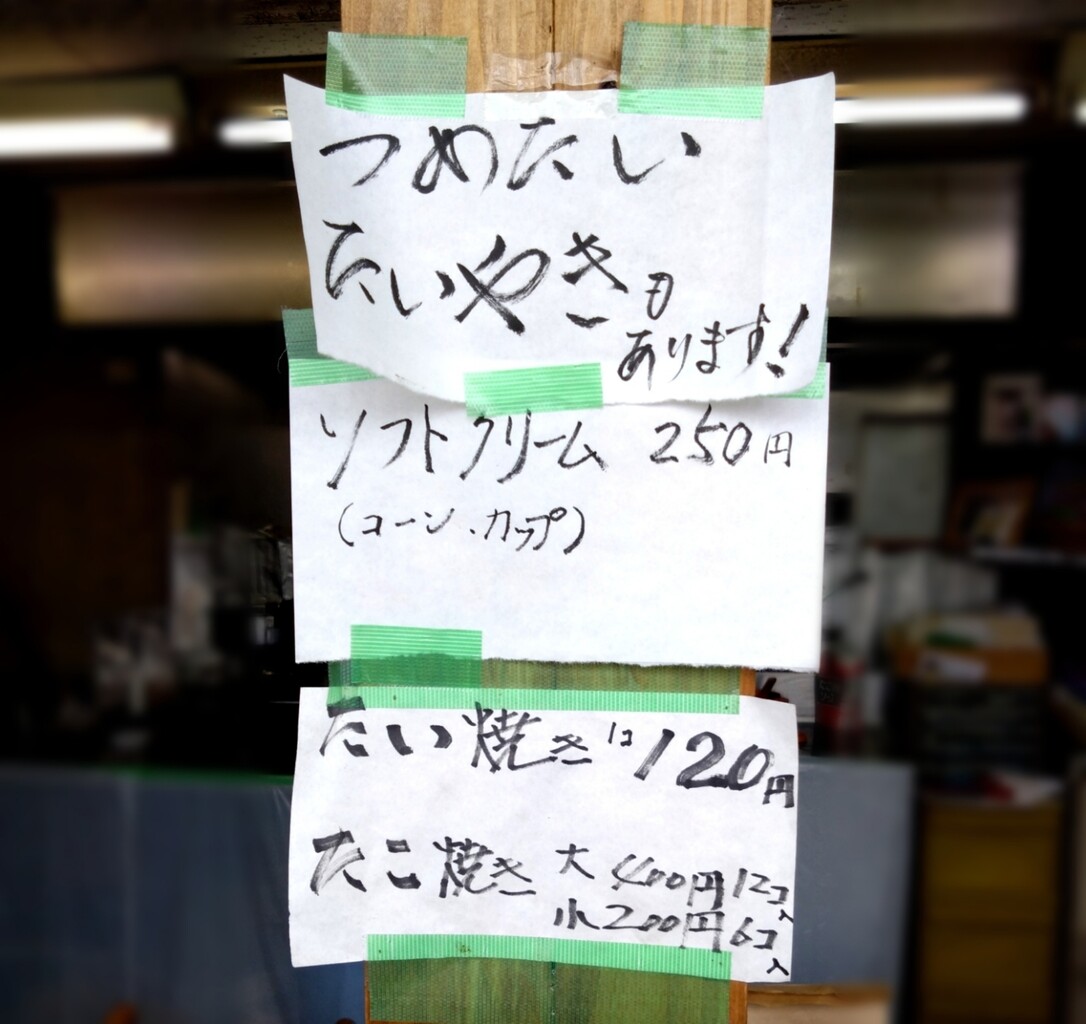 つめたい
たいやきも
あります!
ソフトクリーム 250円
(コーン・カップ)
たい焼き 1コ 120円
たこ焼き 大 400円 12コ入
小 200円 6コ入